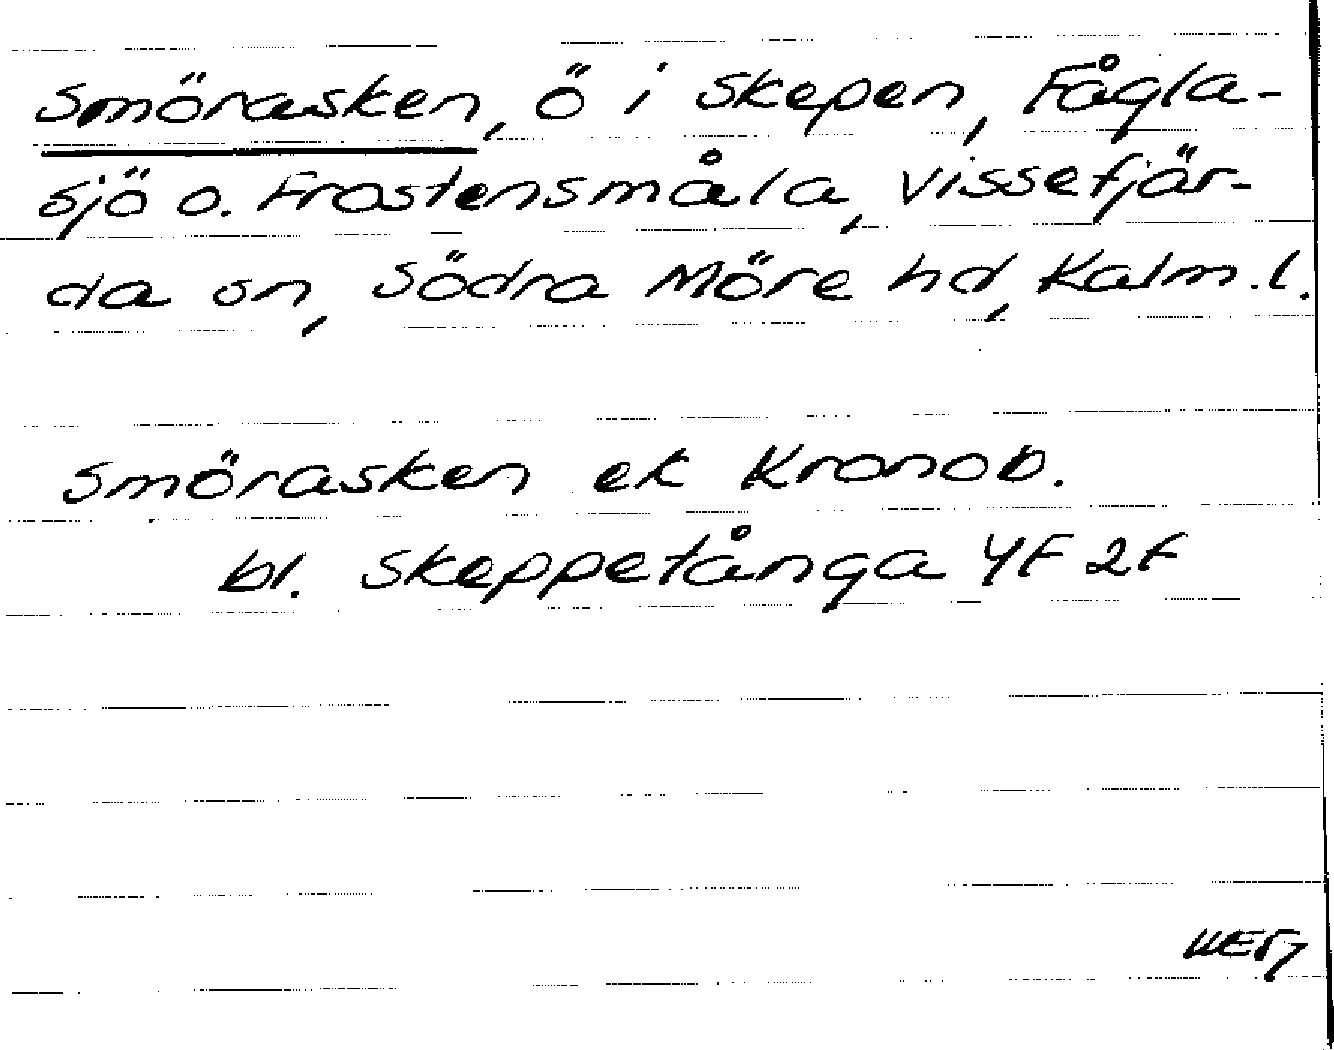 Smörasken, ö i Skepen, Fågla-
sjö o. Frostensmåla, Vissefjär-
da sn, Södra Möre hd, Kalm. l.
Smörasken ek Kronob.
bl. Skeppetånga 4F 2F